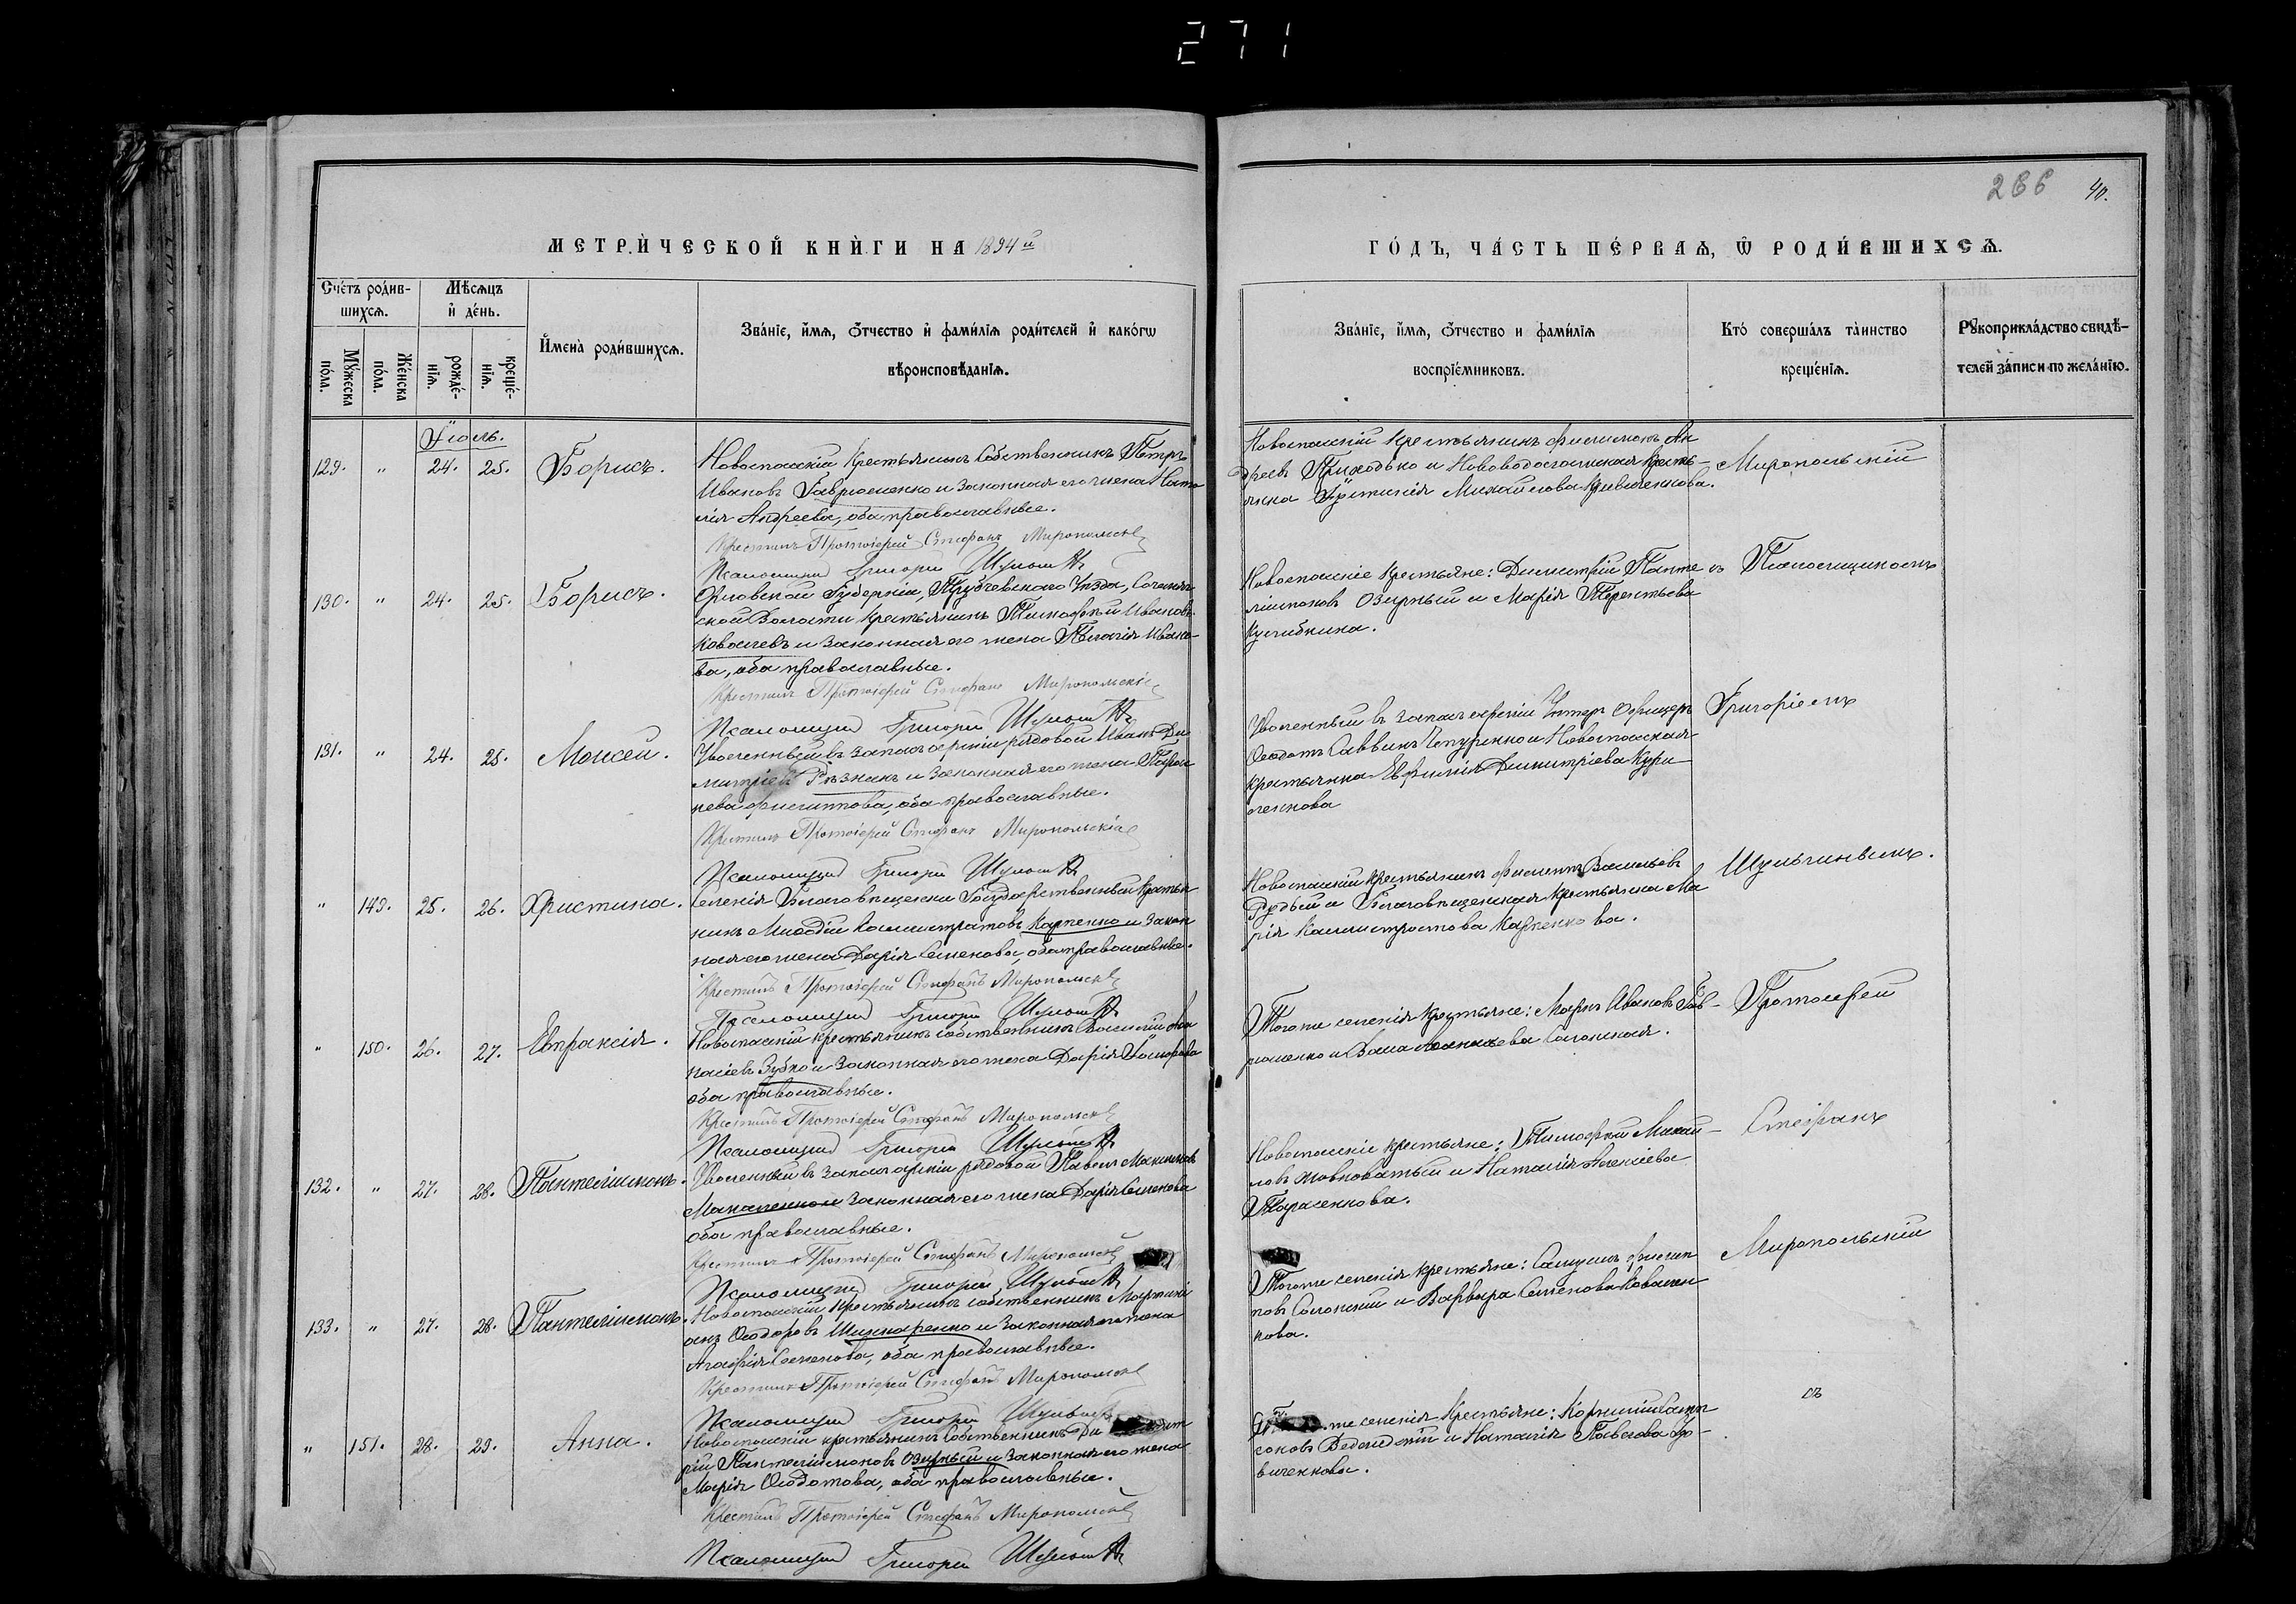 271
266
40.
МЕТРИ́ЧЕСКОЙ КНИ́ГИ НА 1894 й
ГО́ДЪ, ЧА́СТЬ ПЕ́РВАѦ, Ѽ РОДИ́ВШИХСѦ.
Сче́тъ роди́в-
шихсѧ.
Мѣсѧцъ
и҆ де́нь.
Мꙋ́жеска по́ла.
Же́нска по́ла.
рожде́-
нїѧ.
креще́-
нїѧ.
И҆мена̀ роди́вшихсѧ.
Зва́нїе, и҆́мѧ, ѻ҆́тчество и҆ фами́лїѧ роди́телей и҆ како́гѡ
вѣроисповѣ́данїѧ.
Зва́нїе, и҆́мѧ, ѻ҆́тчество и фами́лїѧ
воспрїе́мниковъ.
Кто̀ соверша́лъ та́инство
креще́нїѧ.
Рꙋкоприкла́дство свидѣ́-
телей за́писи по жела́нїю.
Іюль.
129. " 24. 25. Борисъ.
Новоспасскій крестьянинъ собственникъ Петръ
Ивановъ Гавриленко и законная его жена Ната
лія Андреева, оба православные.
Крестилъ Протоіерей Стефанъ Миропольскій
Псаломщикъ Григорій
Новоспасскій крестьянинъ Филимонъ Ан
дреевъ Приходько и Нововодолажская кресть-
янка Михайлова
Миропольскій
130. " 24. 25. Борисъ.
Орловской Губерніи, Трубчевского Уѣзда,
ской Волости крестьянинъ Тимофей Ивановъ
Ковалевъ и законная его жена Пелагія Ивано-
ва, оба православные.
Крестилъ Протоіерей Стефанъ Миропольскій
Псаломщикъ Григорій
Новоспасскіе крестьяне: Димитрій Панте
лимоновъ Озирный и Марія Терентьева
съ Псаломщикомъ
131. " 24. 25. Моисей.
Уволенный въ запасъ арміи рядовой Иванъ Ди
митріевъ Рѣзникъ и законная его жена Параске
вева Филиппова, оба православные.
Крестилъ Протоіерей Стефанъ Миропольскій
Псаломщикъ Григорій
Уволенный въ запасъ арміи Унтеръ Офицеръ
Ѳеодотъ Саввинъ и Новоспасская
крестьянка Евфимія Димитріева Кури
ленкова
Григоріемъ
" 149. 25. 26. Христина.
селенія Благовѣщенки Государственный крестья
нинъ Меѳодій Каллистратовъ Карпенко и закон
ная его жена Дарія Семенова, оба православные.
Крестилъ Протоіерей Стефанъ Миропольскій
Псаломщикъ Григорій
Новоспасскій крестьянинъ Филиппъ Васильевъ
Рудый и Благовѣщенская крестьянка Ма
рія Каллистратова Карпенкова.
Шульгинымъ.
" 150. 26. 27. Евпраксія.
Новоспасскій крестьянинъ собственникъ Василій Афа
насіевъ Зубко и законная его жена Дарія
оба православные.
Крестилъ Протоіерей Стефанъ Миропольскій
Псаломщикъ Григорій
Того же селенія крестьяне: Маркъ Ивановъ Гав-
риленко и
Протоіерей
132. " 27. 28. Пантелимонъ.
Уволенный въ запасъ арміи рядовой Павелъ Максимовъ
и законная его жена Дарія Семенова
оба православные.
Крестилъ Протоіерей Стефанъ Миропольскій
Псаломщикъ Григорій
Новоспасскіе крестьяне: Тимофей Михай-
ловъ Жовноватый и Наталія Алексіева
Тарасенкова.
Стефанъ
133. " 27. 28. Пантелимонъ.
Новоспасскій крестьянинъ собственникъ Мартині
анъ Ѳеодоровъ Шинкаренко и законная его жена
Агафія Семенова, оба православные.
Крестилъ Протоіерей Стефанъ Миропольскій
Псаломщикъ Григорій
Того же селенія крестьяне: Самуилъ Филип
повъ и Варвара Семенова Ковален
кова.
Миропольскій
" 151. 28. 29. Анна.
Новоспасскій крестьянинъ собственникъ Димит
рій Пантелимоновъ Озирный и законная его жена
Марія Ѳеодотова, оба православные.
Крестилъ Протоіерей Стефанъ Миропольскій
Псаломщикъ Григорій
же селенія крестьяне: Корнилій Самп
соновъ и Наталія Павлова
съ